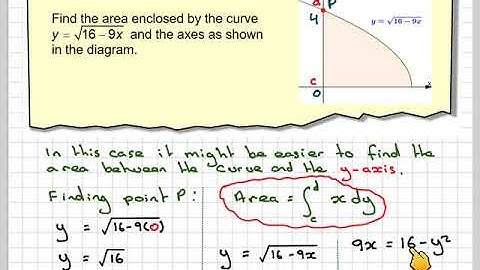 Find the area enclosed by the curve
y = √16 – 9x and the axes as shown
in the diagram.
d P
4
y = √16 − 9x
c
0
x
In this case it might be easier to find the
area between the curve and the y-axis.
Finding point P:
Area = ∫_c^d x dy
y = √16-9(0)
y = √16
y = √16-9x
9x = 16-y²